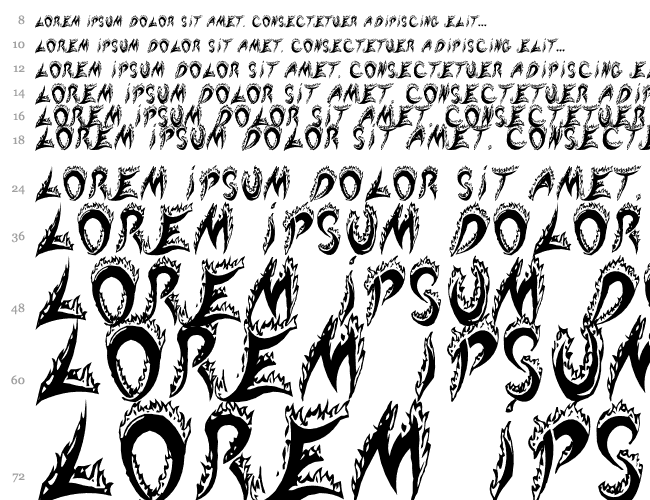 8 LOREM IPSUM DOLOR SIT AMET, CONSECTETUER ADIPISCING ELIT...
10 LOREM IPSUM DOLOR SIT AMET, CONSECTETUER ADIPISCING ELIT...
12 LOREM IPSUM DOLOR SIT AMET, CONSECTETUER ADIPISCING EL
14 LOREM IPSUM DOLOR SIT AMET, CONSECTETUER ADIP
16 LOREM IPSUM DOLOR SIT AMET, CONSECTETUER
18 LOREM IPSUM DOLOR SIT AMET, CONSECTE
24 LOREM IPSUM DOLOR SIT AMET,
36 LOREM IPSUM DOLOR
48 LOREM IPSUM DO
60 LOREM IPSUM
72 LOREM IPS